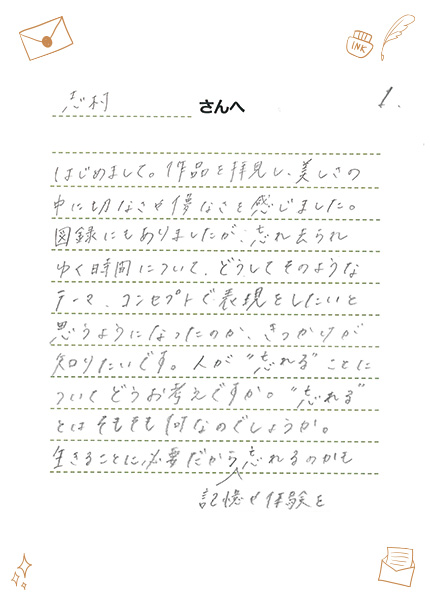 INK
志村 さんへ
1.
はじめまして。作品を拝見し、美しさの
中に切なさや儚なさを感じました。
図録にもありましたが、忘れ去られ
ゆく時間について、どうしてそのような
テーマ、コンセプトで表現をしたいと
思うようになったのか、きっかけが
知りたいです。人が“忘れる”ことに
ついてどうお考えですか。“忘れる”
とはそもそも何なのでしょうか。
生きることに必要だから忘れるのかも
記憶や体験を